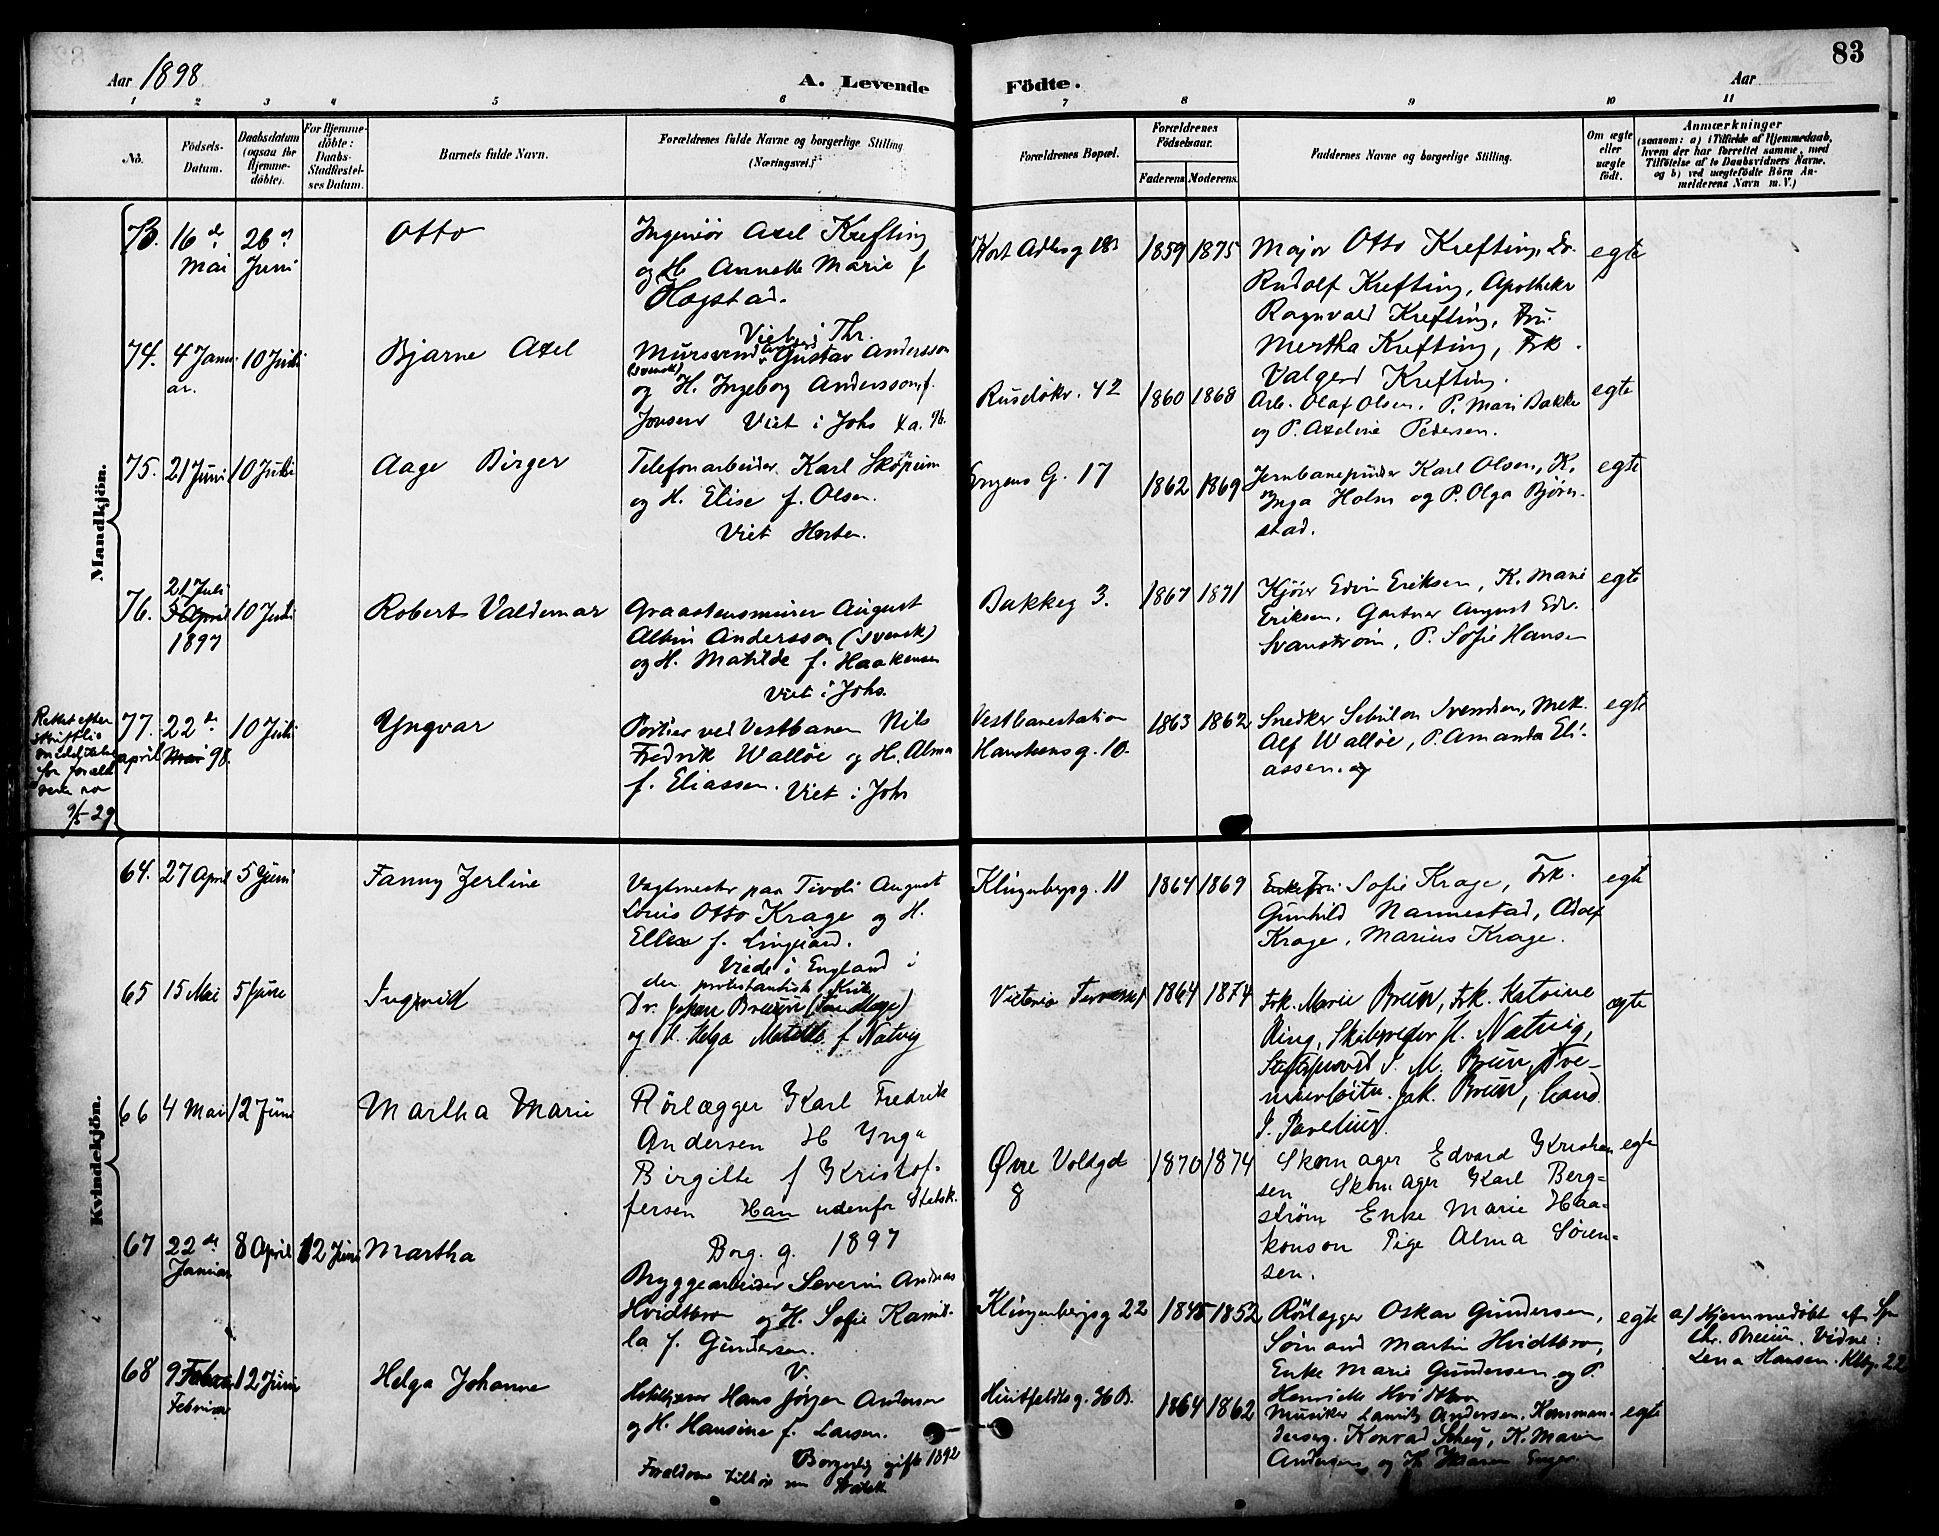 83
Aar 1898
A. Levende
Födte.
Aar
1 2 3 4 5 6 7 8 9 10 11
No.
Födsels-
Datum.
Daabsdatum
(ogsaa for
Hjemme-
döbte).
For Hjemme-
döbte:
Daabs-
Stadfæstel-
ses Datum.
Barnets fulde Navn.
Forældrenes fulde Navne og borgerlige Stilling
(Næringsvei.)
Forældrenes Bopæl.
Forældrenes
Födselsaar.
Faderens. Moderens.
Faddernes Navne og borgerlige Stilling.
Om ægte
eller
uægte
födt.
Anmærkninger
(saasom: a) i Tilfælde af Hjemmedaab,
hvem der har forrettet samme, med
Tilföielse af to Daabsvidners Navne,
og b) ved uægtefödte Börn An-
melderens Navn m. V.)
Mandkjön.
73. 16 de
Mai
26 Juni
Otto
Ingeniör Axel Krefting
og H. Annette Marie f
Hagstad.
Kort Adlersg 18
1859 1875
Major Otto Krefting, Dr.
Rudolf Krefting, Apotheker
Ragnvald Krefting, Fru
Mertha Krefting, Frk.
Valgerd Krefting.
egte
74. 4 Janu
ar.
10 Juli
Bjarne Axel
Viet i Thr.
Mursvend Gustav Andersson
(svensk)
og H. Ingeborg Andersson, f.
Jonsen Viet i Johs
Ruseløkv. 42
1860 1868
Arb. Olaf Olsen, P. Mari Bakke
og P. Axeline Pedersen.
egte
75. 21 Juni 10 Juli
Aage Birger
Telefonarbeider Karl
og H. Elise f. Olsen.
Viet Horten.
G. 17
1862 1869
Karl Olsen, K.
Inga Holm og P. Olga Bjørn-
stad.
egte
76. 21 Juli
5 April
1897
10 Juli
Robert Valdemar
Graastensmurer August
Albin Andersson (svensk)
og H. Matilde f. Haakensen
Viet i Johs.
Bakkeg 3.
1867 1871
Kjører Edvin Eriksen, K. Marie
Eriksen, Gartner August Edv.
Svanstrøm, P. Sofie Hansen
egte
Rettet efter
skriftlig
meddelelse
fra foræld
rene
9/5 29
77. 22 de
april Mai 98.
10 Juli
Yngvar
Portier ved Vestbanen Nils
Fredrik Walløe og H. Alma
f. Eliassen. Viet i Johs
Vestbanestation
Hansteensg. 10.
1863 1862
Snedker Svendsen, Mek.
Alf Walløe, P. Amanda Eli-
assen. og
egte
Kvindekjön.
64. 27 April 5 Juni
Fanny Zerline
Vagtmester paa Tivoli August
Louis Otto Krage og H.
Ellen f. Lingaard.
Klingenbergsg. 11
1864 1869
Enkefru Sofie Krage, Frk.
Gunhild Nannestad, Adolf
Krage, Marius Krage.
egte
65 15 Mai 5 Juni
Ingrid
Viede i England i
den protestantisk Kirke
Dr. Johan Bruun
og H. Helga Matilde f Natvig
Victoria Terrasse
1864 1874
Frk. Marie Bruun, Frk. Katrine
Ring, Skibsreder H. Natvig,
J. M. Bruun,
Jak. Bruun, Cand.
J.
ægte
66 4 Mai 12 Juni
Martha Marie
Rörlægger Karl Fredrik
Andersen H Ynga
Birgitte f Kristof-
fersen Han udenfor Statsk.
Borg. g. 1897
Øvre Voldgd
8
1870 1874
Skomager Edvard Kristian
sen Skomager Karl Berg-
strøm Enke Marie Haa-
konson Pige Alma Sören-
sen.
egte
67 22 de
Januar
8 April 12 Juni
Martha
Bryggearbeider Severin Andreas
Hvidtbro og H. Sofie Kamil-
la f. Gundersen.
V.
Klingenbergsg 22
1845 1852
Rörlægger Oskar Gundersen,
Sömand Martin Hvidtbro,
Enke Marie Gundersen og P.
Henriette Hvidtbro
egte
a) Hjemmedøbt af
Chr. Bruun. Vidne:
Lena Hansen. Klbg. 22
68 9 Februar
Februar
12 Juni
Helga Johanne
Hans Jörgen Andersen
og H. Hansine f. Larsen.
Borgerlig gift 1892
Forældrene
Huitfeldtsg. 14 B.
1864 1862
Musiker Lauritz Andersen, Komman-
dersg. Konrad K. Maria
Andersen, og
egte